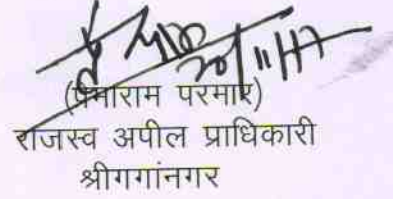 20/11/17
(प्रेमाराम परमार)
राजस्व अपील प्राधिकारी
श्रीगगांनगर